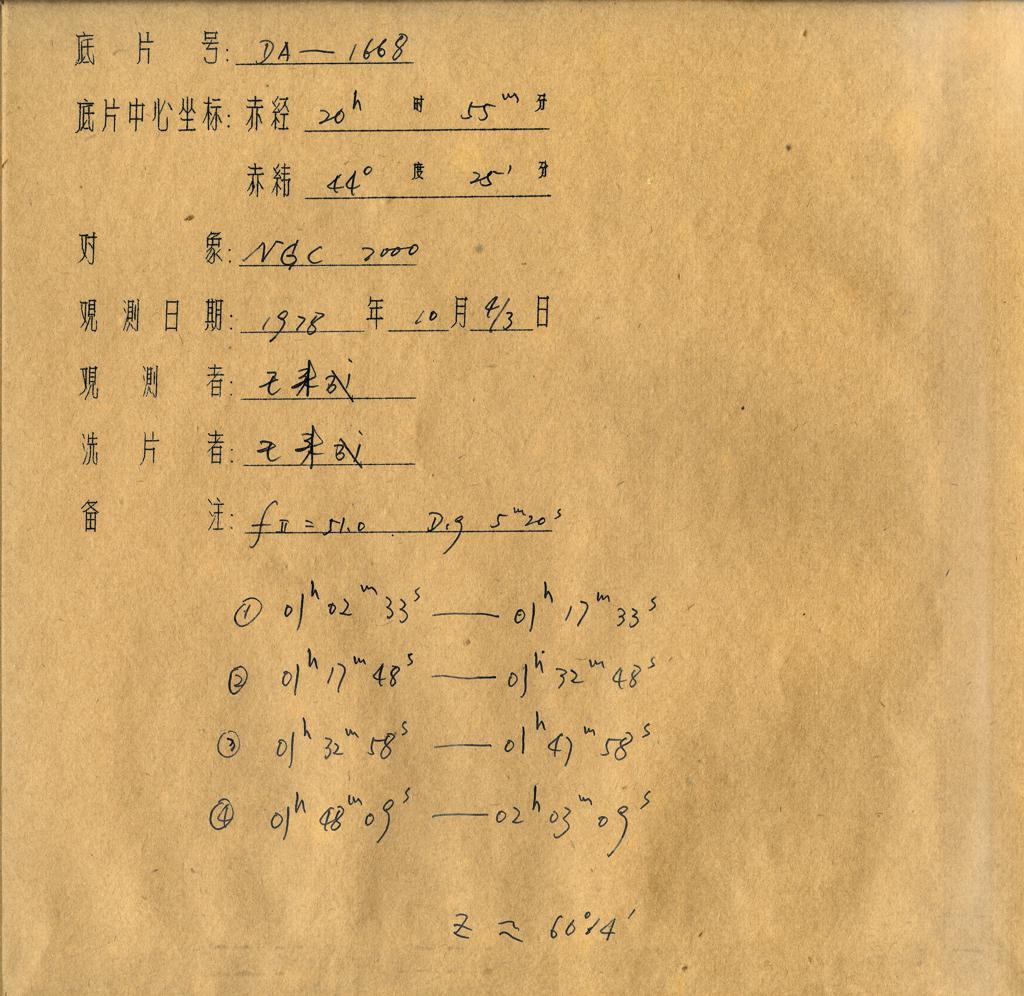 底片号: DA—1668
底片中心坐标: 赤经 20ʰ 时 55ᵐ 分
赤纬 44° 度 25′ 分
对象: NGC 7000
观测日期: 1978 年 10 月 4/3 日
观测者:
洗片者:
备注: fⅡ = 51.0 D.g 5ᵐ20ˢ
① 01ʰ02ᵐ33ˢ — 01ʰ17ᵐ33ˢ
② 01ʰ17ᵐ48ˢ — 01ʰ32ᵐ48ˢ
③ 01ʰ32ᵐ58ˢ — 01ʰ47ᵐ58ˢ
④ 01ʰ48ᵐ09ˢ — 02ʰ03ᵐ09ˢ
Z ≈ 60°14′